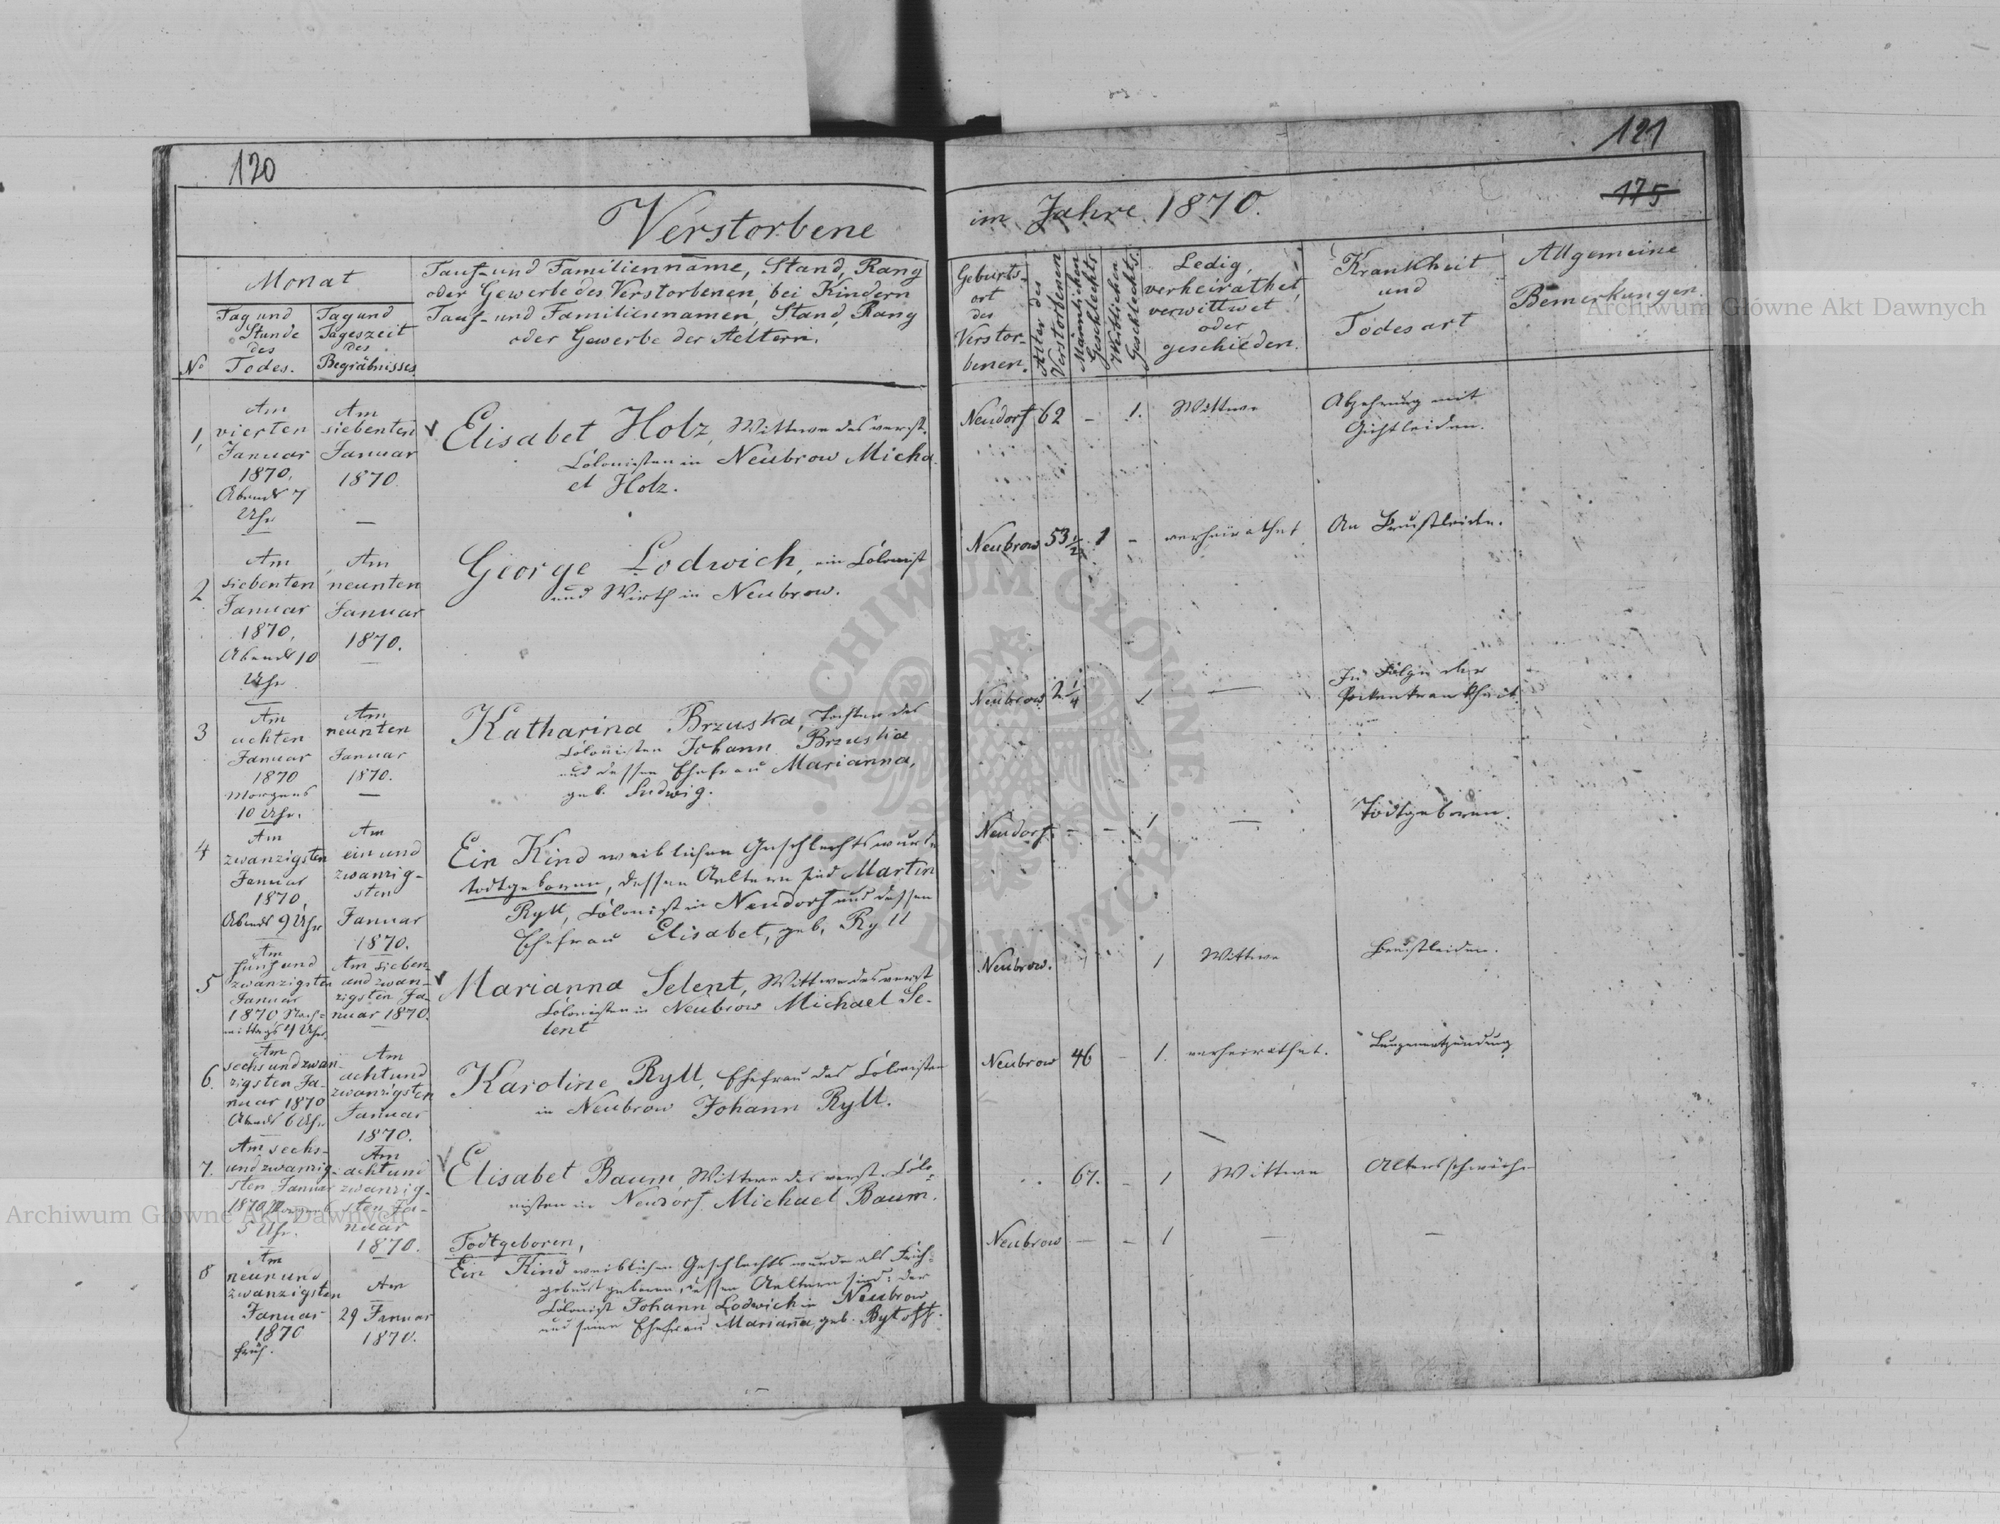 120
Verstorbene
Monat
Tauf- und Familienname, Stand, Rang
oder Gewerbe des Verstorbenen, bei Kindern
Tauf- und Familiennamen, Stand, Rang
oder Gewerbe der Aeltern.
No
Tag und
Stunde
des
Todes.
Tag und
Tageszeit
des
Begräbnisses.
1,
Am
vierten
Januar
1870,
Abends 7
Uhr
Am
siebenten
Januar
1870.
Elisabet Holz, Wittwe des verst.
Colonisten in Neubrow Micha
el Holz.
2
Am
siebenten
Januar
1870,
Abends 10
Uhr
Am
neunten
Januar
1870.
George Lodwich, ein Colonist
und Wirth in Neubrow.
3
Am
achten
Januar
1870
Morgens
10 Uhr.
Am
neunten
Januar
1870.
Katharina Brzuska, Tochter des
Colonisten Johann Brzuska
und dessen Ehefrau Marianna,
geb. Ludwig.
4
Am
zwanzigsten
Januar
1870,
Abends 9 Uhr
Am
ein und
zwanzig-
sten
Januar
1870.
Ein Kind weiblichen Geschlechts wurde
todtgeboren, dessen Aeltern sind Martin
Ryll, Colonist in Neudorf und dessen
Ehefrau Elisabet, geb. Ryll
5
Am
fünf und
zwanzigsten
Januar
1870 Nach-
mittags 4 Uhr
Am sieben-
und zwan-
zigsten Ja-
nuar 1870.
Marianna Selent, Wittwe des verst
Colonisten in Neubrow Michael Se-
lent
6.
Am
sechs und zwan-
zigsten Ja-
nuar 1870
Abends 6 Uhr
Am
acht und
zwanzigsten
Januar
1870.
Karoline Ryll, Ehefrau des Colonisten
in Neubrow Johann Ryll.
7.
Am sechs-
und zwanzig-
sten Januar
1870 Morgens
5 Uhr.
Am
acht und
zwanzig-
sten Ja-
nuar
1870.
Elisabet Baum, Wittwe des verst. Colo-
nisten in Neudorf Michael Baum.
8
Am
neun und
zwanzigsten
Januar
1870
früh.
Am
29 Januar
1870.
Todtgeboren,
Ein Kind weiblichen Geschlechts wurde als Früh-
geburt geboren, dessen Aeltern sind: der
Colonist Johann Lodwich in Neubrow
und seine Ehefrau Marianna geb. Bytoff.
121
175
im Jahre 1870.
Geburts-
ort
des
Verstor-
benen.
Alter des
Verstorbenen
Männlichen
Geschlechts
Weiblichen
Geschlechts.
Ledig,
verheirathet,
verwittwet
oder
geschieden.
Krankheit
und
Todesart
Allgemeine
Bemerkungen.
Neudorf 62 - 1. Wittwe
Abzehrung mit
Gichtleiden.
Neubrow 53 1/2 1 - verheirathet An Brustleiden.
Neubrow 2 1/4 1 —
In Folge der
Pockenkrankheit
Neudorf. - - 1 — Todtgeboren.
Neubrow. 1 Wittwe Brustleiden.
Neubrow 46 - 1. verheirathet. Lungenentzündung
67. - 1 Wittwe Altersschwäche
Neubrow — - 1 — —
Archiwum Główne Akt Dawnych
Archiwum Główne Akt Dawnych
ARCHIWUM GŁÓWNE AKT DAWNYCH